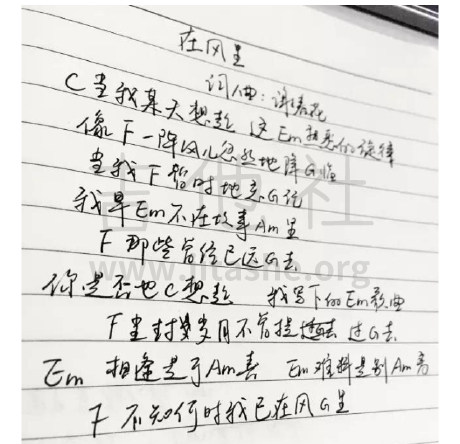 在风里
词/曲：谢春花
C 当我某天想起 这Em熟悉的旋律
像F一阵风儿忽然地降G临
当我F暂时地忘G记
我早Em不在故事Am里
F那些曾经已远G去
你是否也C想起 我写下的Em歌曲
F尘封岁月不曾提 过G去
Em 相逢是于Am春 Em难料是别Am离
F 不知何时我已在风G里
吉他社
www.jitashe.org